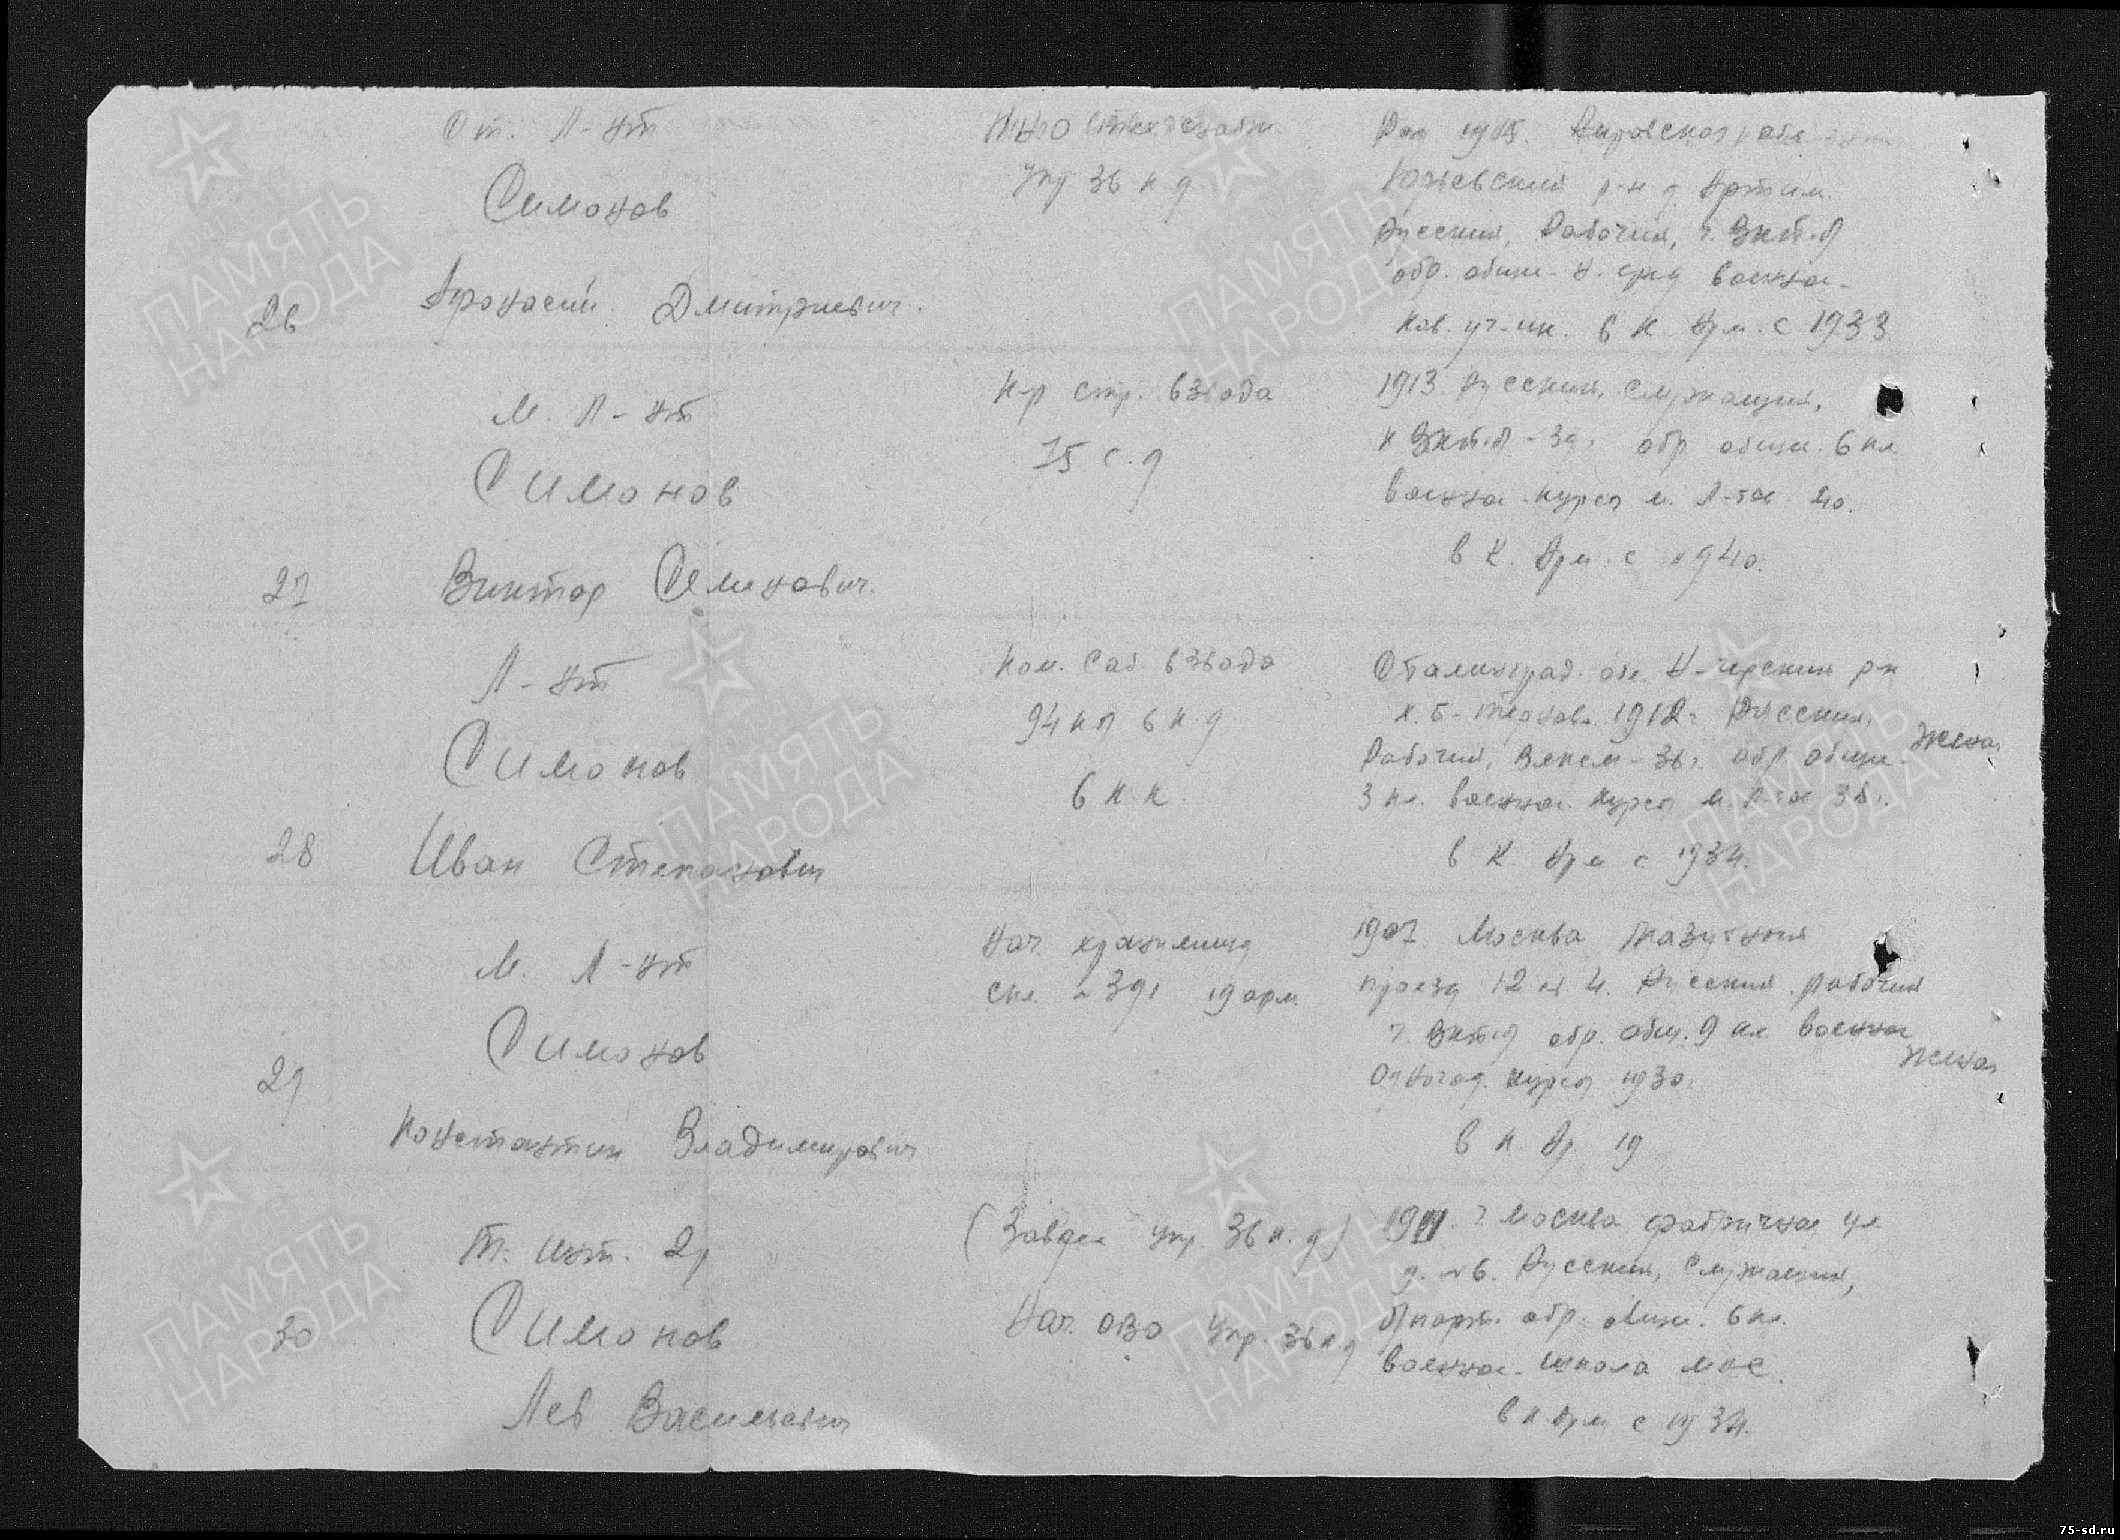 Ст. Л-нт
Симонов
Афонасий Дмитриевич.
26
упр 36 к д
Род 1905. Кировской обл
р-н д Артем.
Русский, Рабочий, ч. ВКП.б
обр. общ - н. сред военное -
Кав. уч-ще. в К. Арм. с 1933
М. Л-нт
Симонов
27
Виктор Семенович.
К-р стр. взвода
75 с. д
1913 Русский, Служащий,
к ВКП.б - 39. обр общ. 6 кл
военное - курсы м. л-тов 40.
в К. Арм. с 1940.
Л-нт
Симонов
28
Иван Степанович
Ком. саб взвода
94 кп 6 к д
6 к. к.
Сталинград. обл. Н-Чирский р-н
1912 Русский,
Рабочий, Влксм - 36. обр общ.
3 кл. военное курсы м. л-тов 38.
в К. Арм с 1934.
жена
М. Л-нт
Симонов
29
Константин Владимирович
Нач. хранилища
скл. № 391 19 арм.
1907. Москва
проезд 12 кв 4. Русский. рабочий
ч. ВКП.б обр. общ. 9 кл военное
Одногод. курсы 1930.
в К Ар 19
жена
Т. инт. 2р
Симонов
30
Лев Васильевич
(Завдел упр. 36 к. д)
Нач. ОВО Упр. 36 к д
1911. г Москва фабричная ул
д. № 6. Русский, Служащий,
б/парт. обр. общ. 6 кл.
военное - школа мос.
в К Арм с 1934.
ПАМЯТЬ
НАРОДА
75-sd.ru